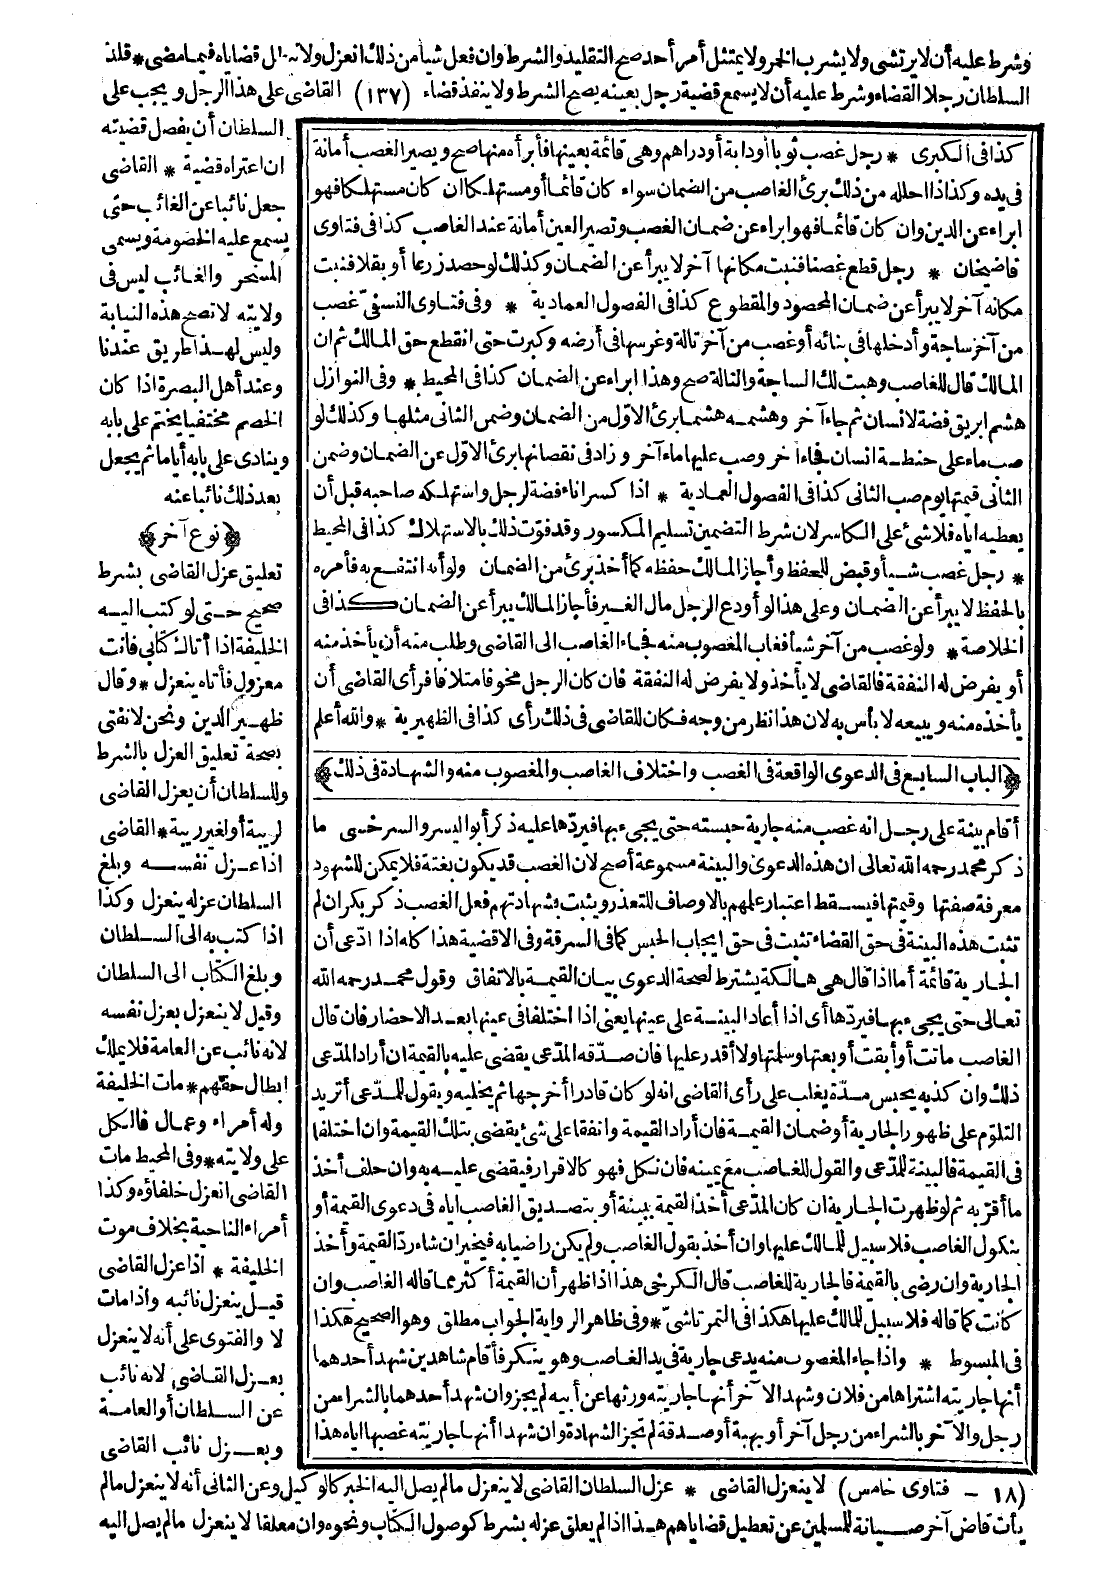 وشرط عليه أن لا يرتشى ولا يشرب الخمر ولا يمتثل أمر أحد صح التقليد والشرط وان فعل شيأ من ذلك انعزل ولا قضاياه فيما مضى * قلد
السلطان رجلا القضاء وشرط عليه أن لا يسمع قضية رجل بعينه يصح الشرط ولا ينفذ قضاء (١٣٧) القاضى على هذا الرجل ويجب على
السلطان أن يفصل قضيته
ان اعتراه قضية * القاضى
جعل نائبا عن الغائب حتى
يسمع عليه الخصومة ويسمى
المسخر والغائب ليس فى
ولايته لا تصح هذه النيابة
وليس لهذا طريق عندنا
وعند أهل البصرة اذا كان
الخصم مختفيا يختم على بابه
وينادى على بابه أياما ثم يجعل
بعد ذلك نائبا عنه
﴿نوع آخر﴾
تعليق عزل القاضى بشرط
صحيح حتى لو كتب اليه
الخليفة اذا أتاك كتابى فانت
معزول فأتاه ينعزل * وقال
ظهير الدين ونحن لا نفتى
بصحة تعليق العزل بالشرط
وللسلطان أن يعزل القاضى
لريبة أو لغير ريبة * القاضى
اذا عزل نفسه وبلغ
السلطان عزله ينعزل وكذا
اذا كتب به الى السلطان
وبلغ الكتاب الى السلطان
وقيل لا ينعزل بعزل نفسه
لانه نائب عن العامة فلا يملك
ابطال حقهم * مات الخليفة
وله أمراء وعمال فالكل
على ولايته * وفى المحيط مات
القاضى انعزل خلفاؤه وكذا
أمراء الناحية بخلاف موت
الخليفة * اذا عزل القاضى
قيل ينعزل نائبه واذا مات
لا والفتوى على أنه لا ينعزل
بعزل القاضى لانه نائب
عن السلطان أو العامة
وبعزل نائب القاضى
كذا فى الكبرى * رجل غصب ثوبا أو دابة أو دراهم وهى قائمة بعينها فأبرأه منها صح ويصير الغصب أمانة
فى يده وكذا اذا حلله من ذلك برئ الغاصب من الضمان سواء كان قائما أو مستهلكا ان كان مستهلكا فهو
ابراء عن الدين وان كان قائما فهو ابراء عن ضمان الغصب وتصير العين أمانة عند الغاصب كذا فى فتاوى
قاضيخان * رجل قطع غصنا فنبت مكانها آخر لا يبرأ عن الضمان وكذلك لو حصد زرعا أو بقلا فنبت
مكانه آخر لا يبرأ عن ضمان المحصود والمقطوع كذا فى الفصول العمادية * وفى فتاوى النسفى غصب
من آخر ساجة وأدخلها فى بنائه أو غصب من آخر تالة وغرسها فى أرضه وكبرت حتى انقطع حق المالك ثم ان
المالك قال للغاصب وهبت لك الساجة والتالة صح وهذا ابراء عن الضمان كذا فى المحيط * وفى النوازل
هشم ابريق فضة لانسان ثم جاء آخر وهشمه هشما برئ الاول من الضمان وضمن الثانى مثلها وكذلك لو
صب ماء على حنطة انسان فجاء آخر وصب عليها ماء آخر وزاد فى نقصانها برئ الاول عن الضمان وضمن
الثانى قيمتها يوم صب الثانى كذا فى الفصول العمادية * اذا كسر اناء فضة لرجل واستهلكه صاحبه قبل أن
يعطيه اياه فلا شئ على الكاسر لان شرط التضمين تسليم المكسور وقد فوت ذلك بالاستهلاك كذا فى المحيط
* رجل غصب شيأ وقبض للحفظ وأجاز المالك حفظه كما أخذ برئ من الضمان ولو أنه انتفع به فأمره
بالحفظ لا يبرأ عن الضمان وعلى هذا لو أودع الرجل مال الغير فأجاز المالك يبرأ عن الضمان كذا فى
الخلاصة * ولو غصب من آخر شيأ فغاب المغصوب منه فجاء الغاصب الى القاضى وطلب منه أن يأخذ منه
أو يفرض له النفقة فالقاضى لا يأخذ ولا يفرض له النفقة فان كان الرجل مخوفا متلافا فرأى القاضى أن
يأخذه منه ويبيعه لا بأس به لان هذا نظر من وجه فكان للقاضى فى ذلك رأى كذا فى الظهيرية * والله أعلم
﴿الباب السابع فى الدعوى الواقعة فى الغصب واختلاف الغاصب والمغصوب منه والشهادة فى ذلك﴾
أقام بينة على رجل انه غصب منه جارية حبسته حتى يجىء بها فيردها عليه ذكر أبو اليسر والسرخسى ما
ذكر محمد رحمه الله تعالى ان هذه الدعوى والبينة مسموعة أصح لان الغصب قد يكون بغتة فلا يمكن للشهود
معرفة صفتها وقيمتها فيسقط اعتبار علمهم بالاوصاف للتعذر ويثبت بشهادتهم فعل الغصب ذكر بكر ان لم
تثبت هذه البينة فى حق القضاء تثبت فى حق ايجاب الحبس كما فى السرقة وفى الاقضية هذا كله اذا ادعى أن
الجارية قائمة أما اذا قال هى هالكة يشترط لصحة الدعوى بيان القيمة بالاتفاق وقول محمد رحمه الله
تعالى حتى يجىء بها فيردها أى اذا أعاد البينة على عينها يعنى اذا اختلفا فى عينها بعد الاحضار فان قال
الغاصب ماتت أو أبقت أو بعتها وسلمتها ولا أقدر عليها فان صدقه المدعى يقضى عليه بالقيمة ان أراد المدعى
ذلك وان كذبه يحبس مدة يغلب على رأى القاضى انه لو كان قادرا أخرجها ثم يخليه ويقول للمدعى أتريد
التلوم على ظهور الجارية أو ضمان القيمة فان أراد القيمة واتفقا على شئ يقضى بتلك القيمة وان اختلفا
فى القيمة فالبينة للمدعى والقول للغاصب مع يمينه فان نكل فهو كالاقرار فيقضى عليه به وان حلف أخذ
ما أقر به ثم لو ظهرت الجارية ان كان المدعى أخذ القيمة ببينة أو بتصديق الغاصب اياه فى دعوى القيمة أو
بنكول الغاصب فلا سبيل للمالك عليها وان أخذ بقول الغاصب ولم يكن راضيا به فيخير ان شاء رد القيمة وأخذ
الجارية وان رضى بالقيمة فالجارية للغاصب قال الكرخى هذا اذا ظهر أن القيمة أكثر مما قاله الغاصب وان
كانت كما قاله فلا سبيل للمالك عليها هكذا فى التمرتاشى * وفى ظاهر الرواية الجواب مطلق وهو الصحيح هكذا
فى المبسوط * واذا جاء المغصوب منه يدعى جارية فى يد الغاصب وهو ينكر فأقام شاهدين شهد أحدهما
أنها جاريته اشتراها من فلان وشهد الآخر أنها جاريته ورثها عن أبيه لم يجز وان شهد أحدهما بالشراء من
رجل والآخر بالشراء من رجل آخر أو بهبة أو صدقة لم تجز الشهادة وان شهدا أنها جاريته غصبها اياه هذا
(١٨ - فتاوى خامس) لا ينعزل القاضى * عزل السلطان القاضى لا ينعزل ما لم يصل اليه الخبر كالوكيل وعن الثانى أنه لا ينعزل ما لم
يأت قاض آخر صيانة للمسلمين عن تعطيل قضاياهم هذا اذا لم يعلق عزله بشرط كوصول الكتاب ونحوه وان معلقا لا ينعزل ما لم يصل اليه